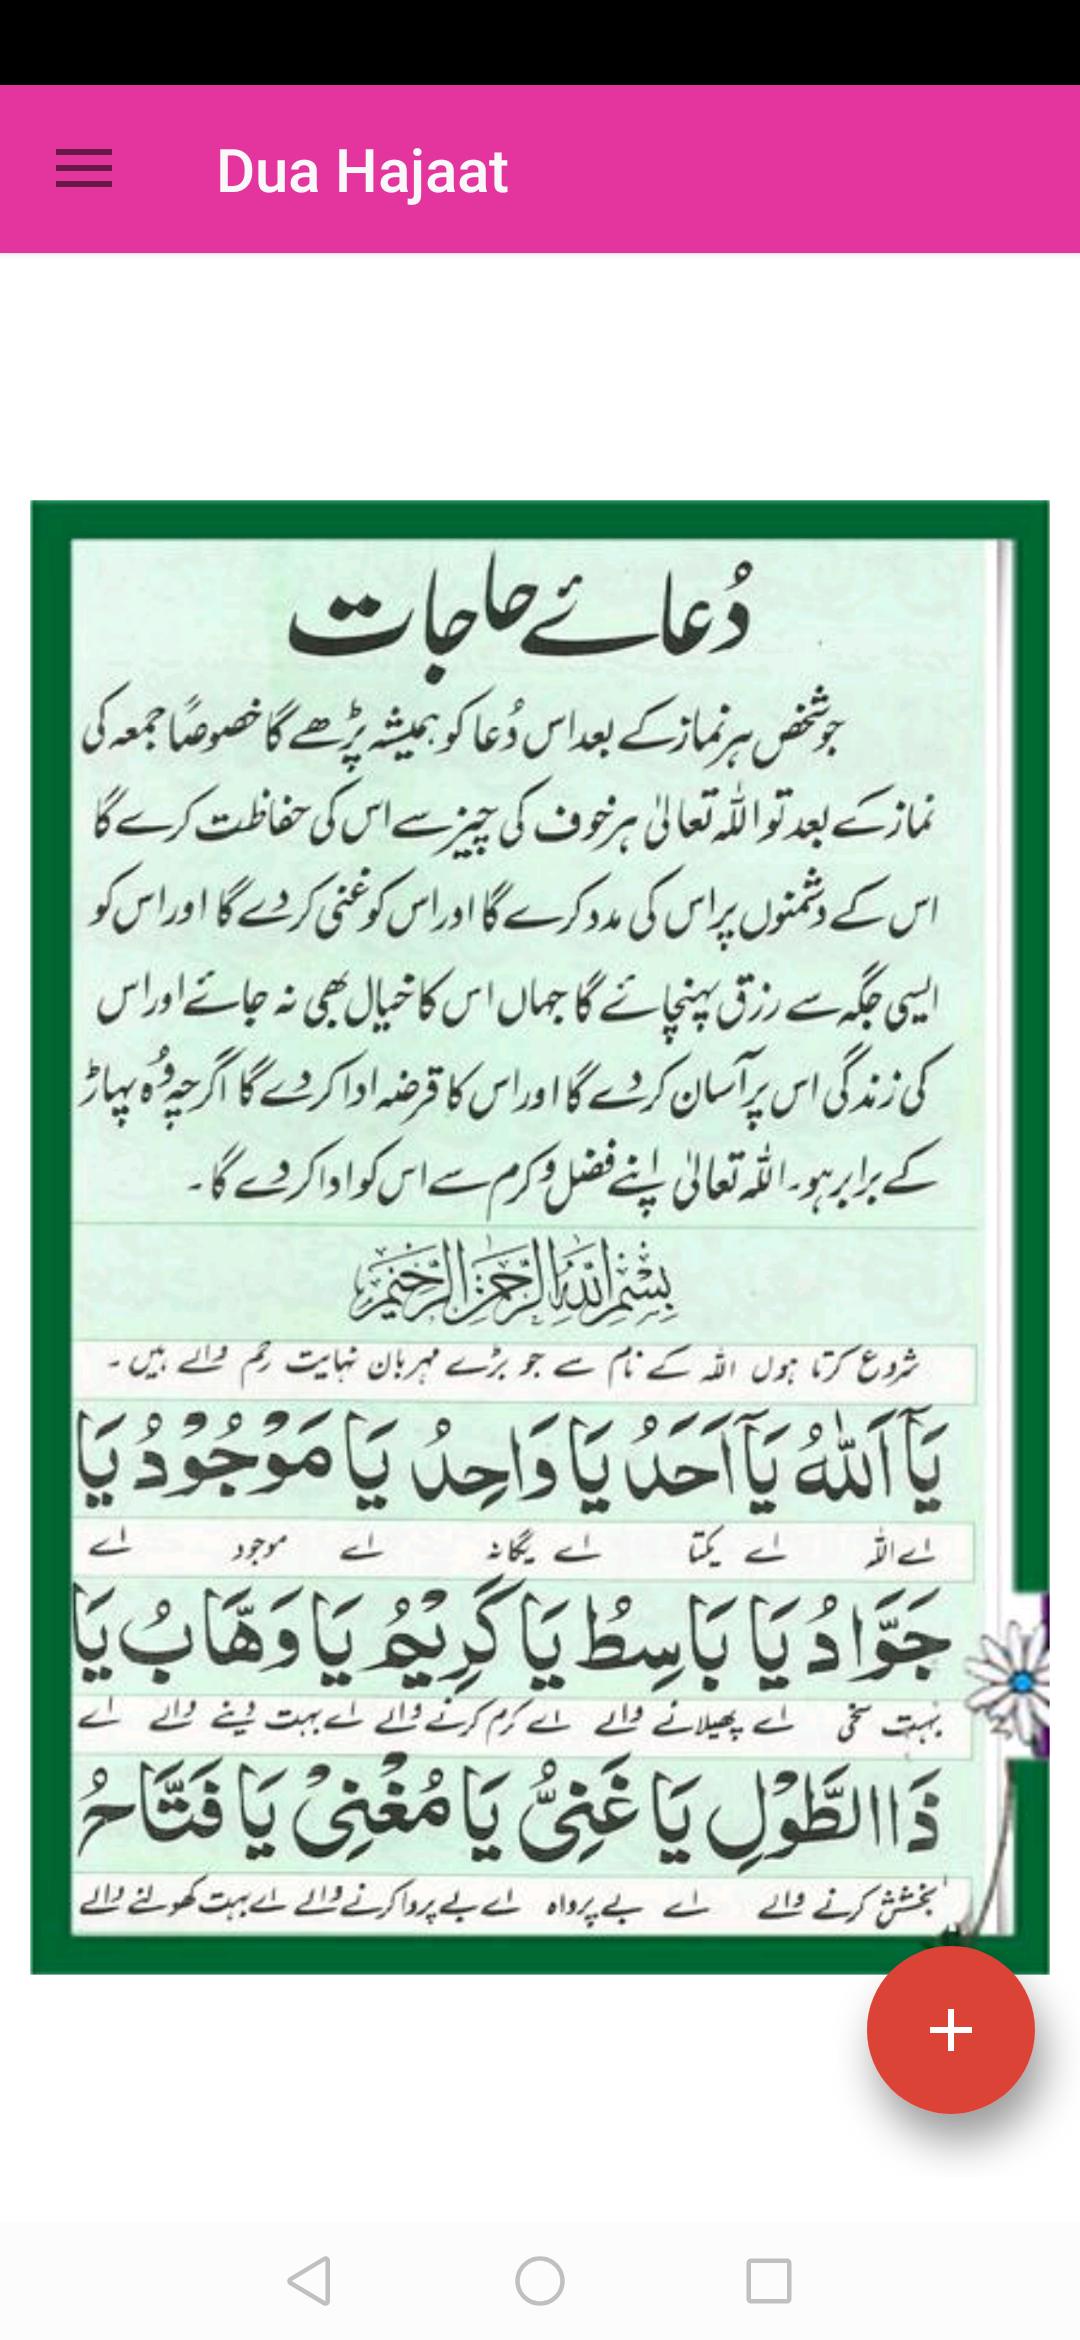 Dua Hajaat
دُعائے حاجات
جو شخص ہر نماز کے بعد اس دُعا کو ہمیشہ پڑھے گا خصوصًا جمعہ کی
نماز کے بعد تو اللہ تعالیٰ ہر خوف کی چیز سے اس کی حفاظت کرے گا
اس کے دشمنوں پر اس کی مدد کرے گا اور اس کو غنی کر دے گا اور اس کو
ایسی جگہ سے رزق پہنچائے گا جہاں اس کا خیال بھی نہ جائے اور اس
کی زندگی اس پر آسان کر دے گا اور اس کا قرضہ ادا کر دے گا اگرچہ وُہ پہاڑ
کے برابر ہو۔ اللہ تعالیٰ اپنے فضل و کرم سے اس کو ادا کر دے گا۔
بِسْمِ اللّٰهِ الرَّحْمٰنِ الرَّحِيْمِ
شروع کرتا ہوں اللہ کے نام سے جو بڑے مہربان نہایت رحم والے ہیں۔
يَآ اَللّٰهُ يَآ اَحَدُ يَا وَاحِدُ يَا مَوْجُوْدُ يَا
اے اللہ اے یکتا اے یگانہ اے موجود اے
جَوَّادُ يَا بَاسِطُ يَا كَرِيْمُ يَا وَهَّابُ يَا
بہت سخی اے پھیلانے والے اے کرم کرنے والے اے بہت دینے والے اے
ذَا الطَّوْلِ يَا غَنِيُّ يَا مُغْنِيْ يَا فَتَّاحُ
بخشش کرنے والے اے بے پرواہ اے بے پروا کرنے والے اے بہت کھولنے والے